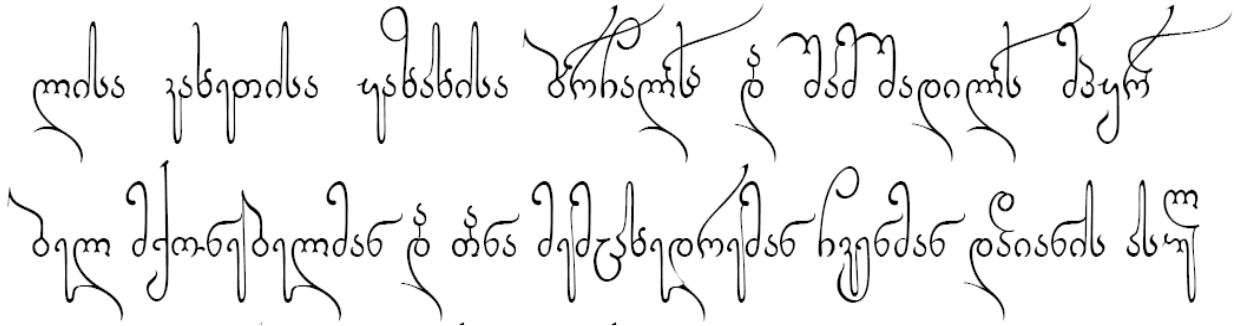 ლისა კახეთისა ყაზახისა ბორჩალოსა და შამშადილოს მპყრო
ბელ მქონებელმან და თანა მეცხედრემან ჩვენმან დადიანის ასულ